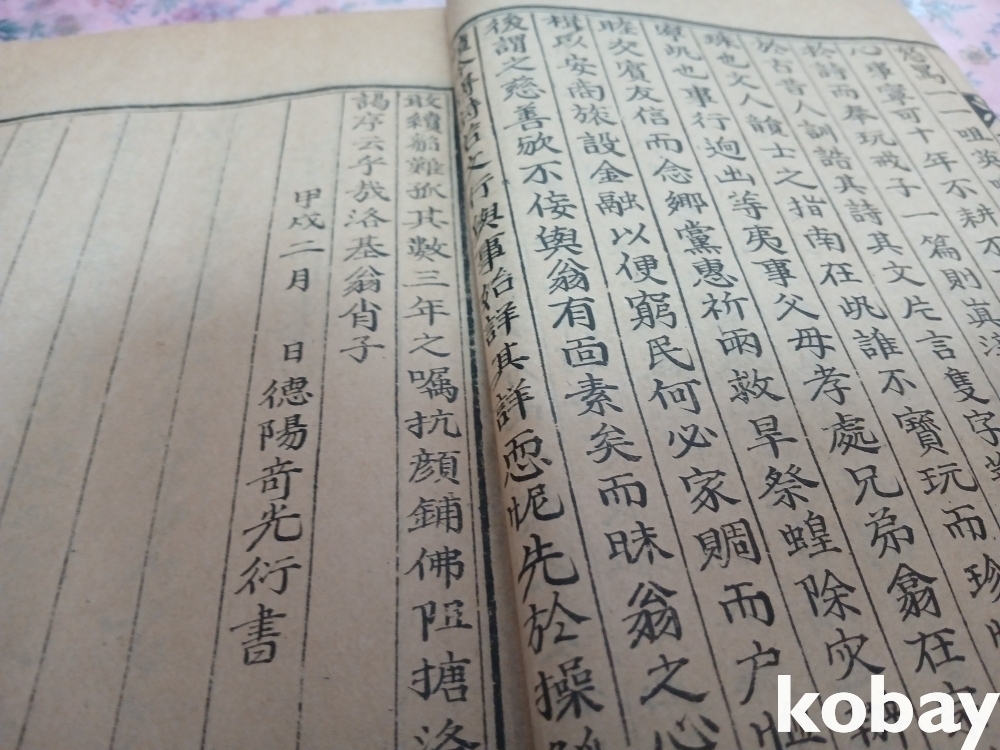 咀英
心事寧可十年不耕不
於詩而奉玩戒子一篇則眞
於古昔人訓誥其詩其文片言隻字
珠也文人韻士之指南在此誰不寶玩而珍
也事行逈出等夷事父毋孝處兄弟翕在
睦交賓友信而念鄉黨惠祈雨救旱祭蝗除灾
楫以安商旅設金融以便窮民何必家賙而户
後謂之慈善歟不侫與翁有面素矣而昧翁之心
行與事始詳其詳恧怩先於操
敢續貂難孤其數三年之嘱抗顔鋪佛 搪
序云乎哉洛基翁肖子
甲戌二月 日德陽奇光衍書
kobay